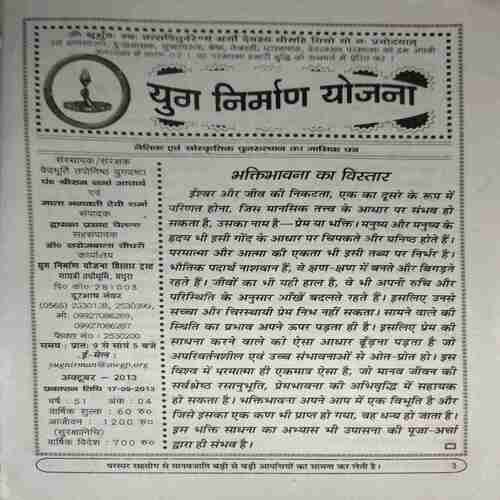 ॐ भूर्भुवः स्वः तत्सवितुर्वरेण्यं भर्गो देवस्य धीमहि धियो यो नः प्रचोदयात्
युग निर्माण योजना
नैतिक एवं सांस्कृतिक पुनरुत्थान का मासिक पत्र
संस्थापक/संरक्षक
वेदमूर्ति तपोनिष्ठ युगद्रष्टा
पं० श्रीराम शर्मा आचार्य
एवं
माता भगवती देवी शर्मा
संपादक
द्वारका प्रसाद चैतन्य
सहसंपादक
डॉ० सरोजबाला चौधरी
कार्यालय
युग निर्माण योजना विस्तार ट्रस्ट
गायत्री तपोभूमि, मथुरा
पि० को० 281003
दूरभाष नंबर
(0565) 2530128, 2530399,
मो. 09927086289,
09927086287
फैक्स नं० : 2530200
समय : प्रातः 9 से सायं 5 बजे
ई-मेल :
yugnirman@awgp.org
अक्टूबर – 2013
प्रकाशन तिथि 17-09-2013
वर्ष : 51 अंक : 04
वार्षिक शुल्क : 60 रु०
आजीवन : 1200 रु०
(सुरक्षानिधि)
वार्षिक विदेश : 700 रु०
भक्तिभावना का विस्तार
ईश्वर और जीव की निकटता, एक का दूसरे के रूप में
परिणत होना, जिस मानसिक तत्त्व के आधार पर संभव हो
सकता है, उसका नाम है—प्रेम या भक्ति। मनुष्य और मनुष्य के
हृदय भी इसी गोंद के आधार पर चिपकते और घनिष्ठ होते हैं।
परमात्मा और आत्मा की एकता भी इसी तथ्य पर निर्भर है।
भौतिक पदार्थ नाशवान हैं, वे क्षण-क्षण में बनते और बिगड़ते
रहते हैं। जीवों का भी यही हाल है, वे भी अपनी रुचि और
परिस्थिति के अनुसार आँखें बदलते रहते हैं। इसलिए उनसे
सच्चा और चिरस्थायी प्रेम निभ नहीं सकता। सामने वाले की
स्थिति का प्रभाव अपने ऊपर पड़ता ही है। इसलिए प्रेम की
साधना करने वाले को ऐसा आधार ढूँढ़ना पड़ता है जो
अपरिवर्तनशील एवं उच्च संभावनाओं से ओत-प्रोत हो। इस
विश्व में परमात्मा ही एकमात्र ऐसा है, जो मानव जीवन की
सर्वश्रेष्ठ रसानुभूति, प्रेमभावना की अभिवृद्धि में सहायक
हो सकता है। भक्तिभावना अपने आप में एक विभूति है और
जिसे इसका एक कण भी प्राप्त हो गया, वह धन्य हो जाता है।
इस भक्ति साधना का अभ्यास भी उपासना की पूजा-अर्चा
द्वारा ही संभव है।
परस्पर सहयोग से मानवजाति बड़ी से बड़ी आपत्तियों का सामना कर लेती है।
3